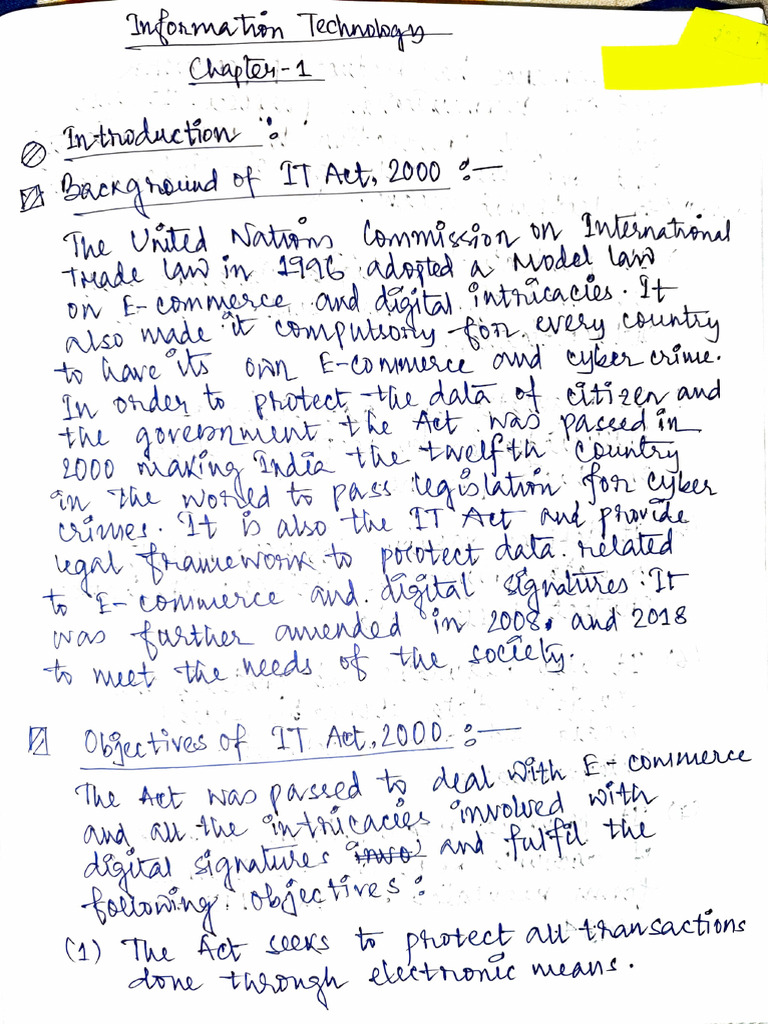 Information Technology
Chapter-1
Introduction :
Background of IT Act, 2000 :—
The United Nations Commission on International
Trade Law in 1996 adopted a Model law
on E-commerce and digital intricacies. It
also made it compulsory for every country
to have its own E-commerce and cyber crime.
In order to protect the data of citizen and
the government the Act was passed in
2000 making India the twelfth country
in the world to pass legislation for cyber
crimes. It is also the IT Act and provide
legal framework to protect data related
to E-commerce and digital signatures. It
was further amended in 2008, and 2018
to meet the needs of the society.
Objectives of IT Act, 2000 :—
The Act was passed to deal with E-commerce
and all the intricacies involved with
digital signatures and fulfil the
following objectives :
(1) The Act seeks to protect all transactions
done through electronic means.